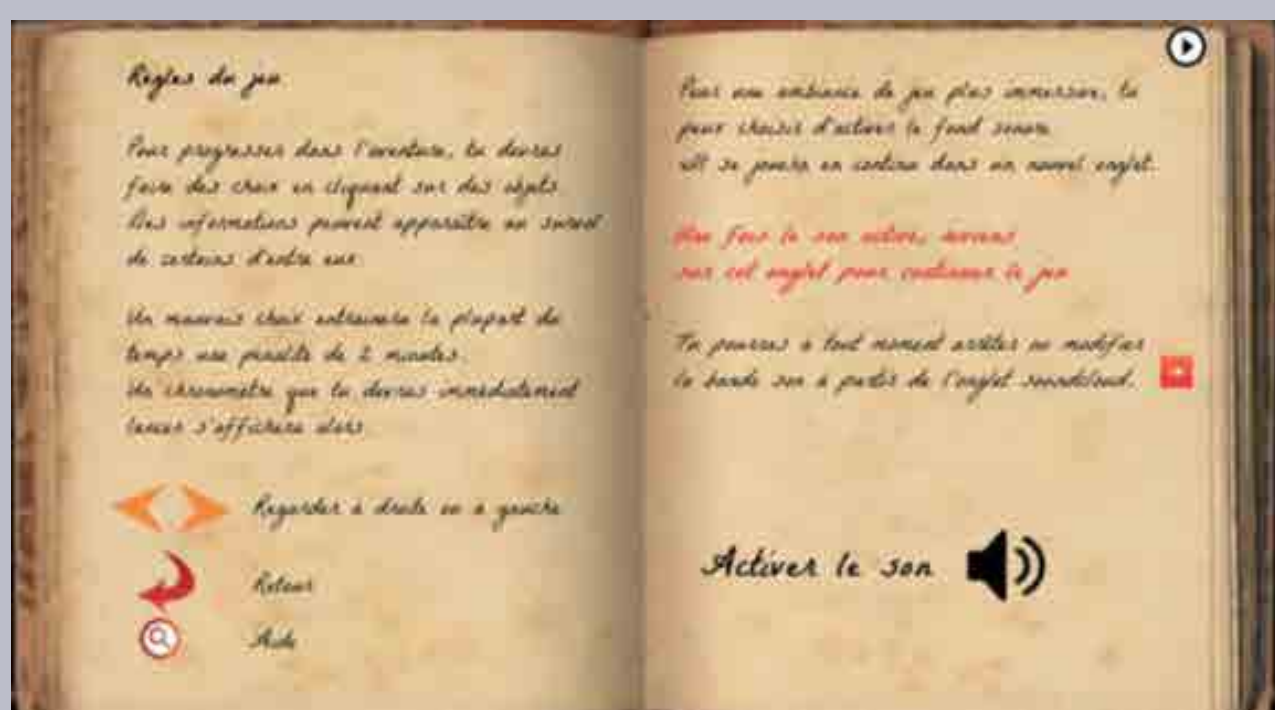 Règles du jeu
Pour progresser dans l'aventure, tu devras
faire des choix en cliquant sur des objets.
Des informations peuvent apparaître au survol
de certains d'entre eux.
Un mauvais choix entrainera la plupart du
temps une pénalité de 2 minutes.
Un chronomètre que tu devras immédiatement
lancer s'affichera alors.
Regarder à droite ou à gauche
Retour
Aide
Pour une ambiance de jeu plus immersive, tu
peux choisir d'activer le fond sonore.
Il se jouera en continu dans un nouvel onglet.
Une fois le son activé, reviens
sur cet onglet pour continuer le jeu
Tu pourras à tout moment arrêter ou modifier
la bande son à partir de l'onglet soundcloud.
Activer le son